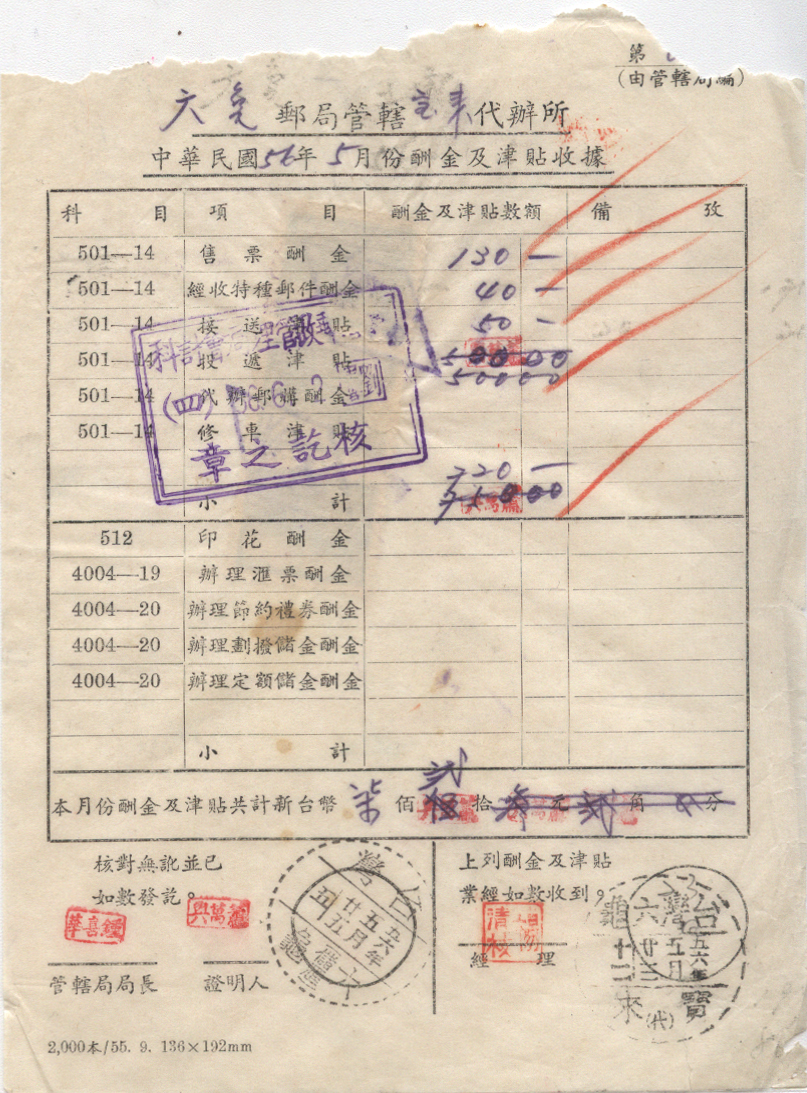 第
(由管轄局編)
六龟 郵局管轄宝来代辦所
中華民國56年5月份酬金及津貼收據
科目 項目 酬金及津貼數額 備攷
501—14 售票酬金 130 —
501—14 經收特種郵件酬金 40 —
501—14 接送津貼 50 —
501—14 投遞津貼 50000
50000
501—14 代辦郵購酬金
501—14 修車津貼
720 —
小計
512 印花酬金
4004—19 辦理滙票酬金
4004—20 辦理節約禮券酬金
4004—20 辦理劃撥儲金酬金
4004—20 辦理定額儲金酬金
小計
貳
本月份酬金及津貼共計新台幣 柒 佰 拾 元 角 分
核對無訛並已
如數發訖。
管轄局局長 證明人
上列酬金及津貼
業經如數收到。
經理
鍾喜華
台灣
五六年
五月
廿五
六龜
台灣
六龜
五六年
五月
廿三
十二
寶來
(代)
清枝
(四)
劉
核訖之章
2,000本/55. 9. 136×192mm